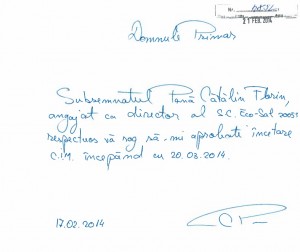 Nr.
21 FEB. 2014
Domnule Primar
Subsemnatul Pană Cătălin Florin,
angajat ca director al S.C. Eco-Sal 2005
respectuos vă rog să-mi aprobati încetare
C.I.M. începând cu 20.03.2014.
17.02.2014